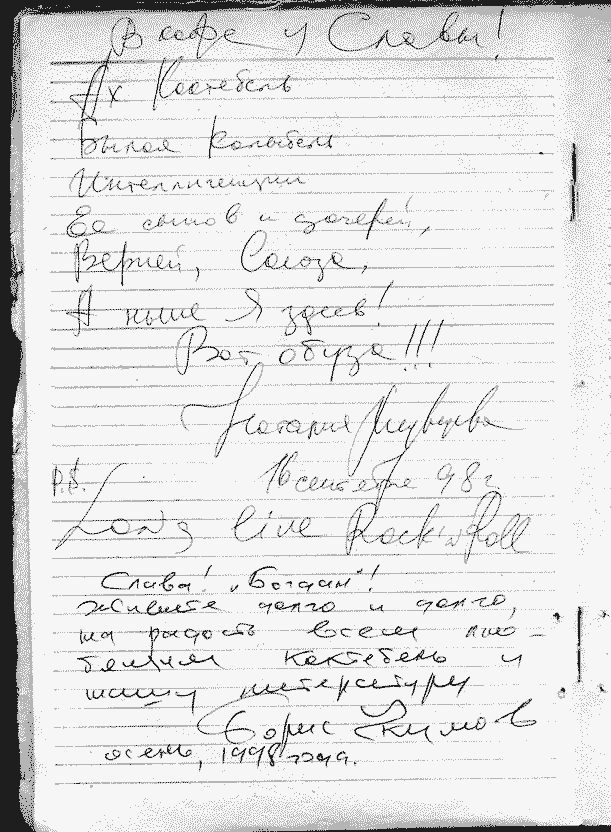 В кафе у Славы!
Ах Коктебель
Былая колыбель
Интеллигенции
Её сынов и дочерей,
Верней, Союза,
А ныне я здесь!
Вот обуза!!!
Наталия Медведева
16 сентября 98 г
P.S.
Long live Rock'n'Roll
Слава! „Богдан“!
Живите долго и долго,
на радость всем лю-
бящим Коктебель и
нашу литературу
Борис Екимов
осень, 1998 года.